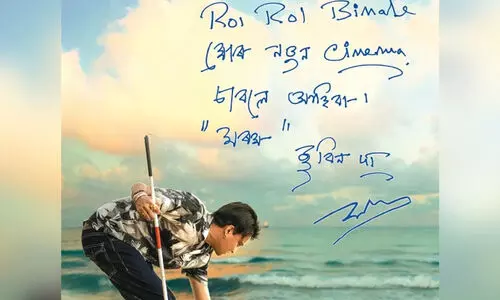 Roi Roi Binale
মোৰ নতুন Cinema
চাবলৈ আহিবা।
"মৰম"
জুবিন দা